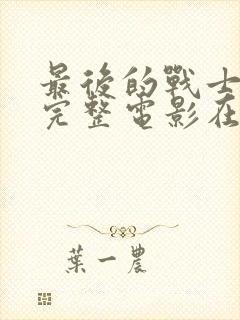 最後的戰士
完整電影在
葉一農